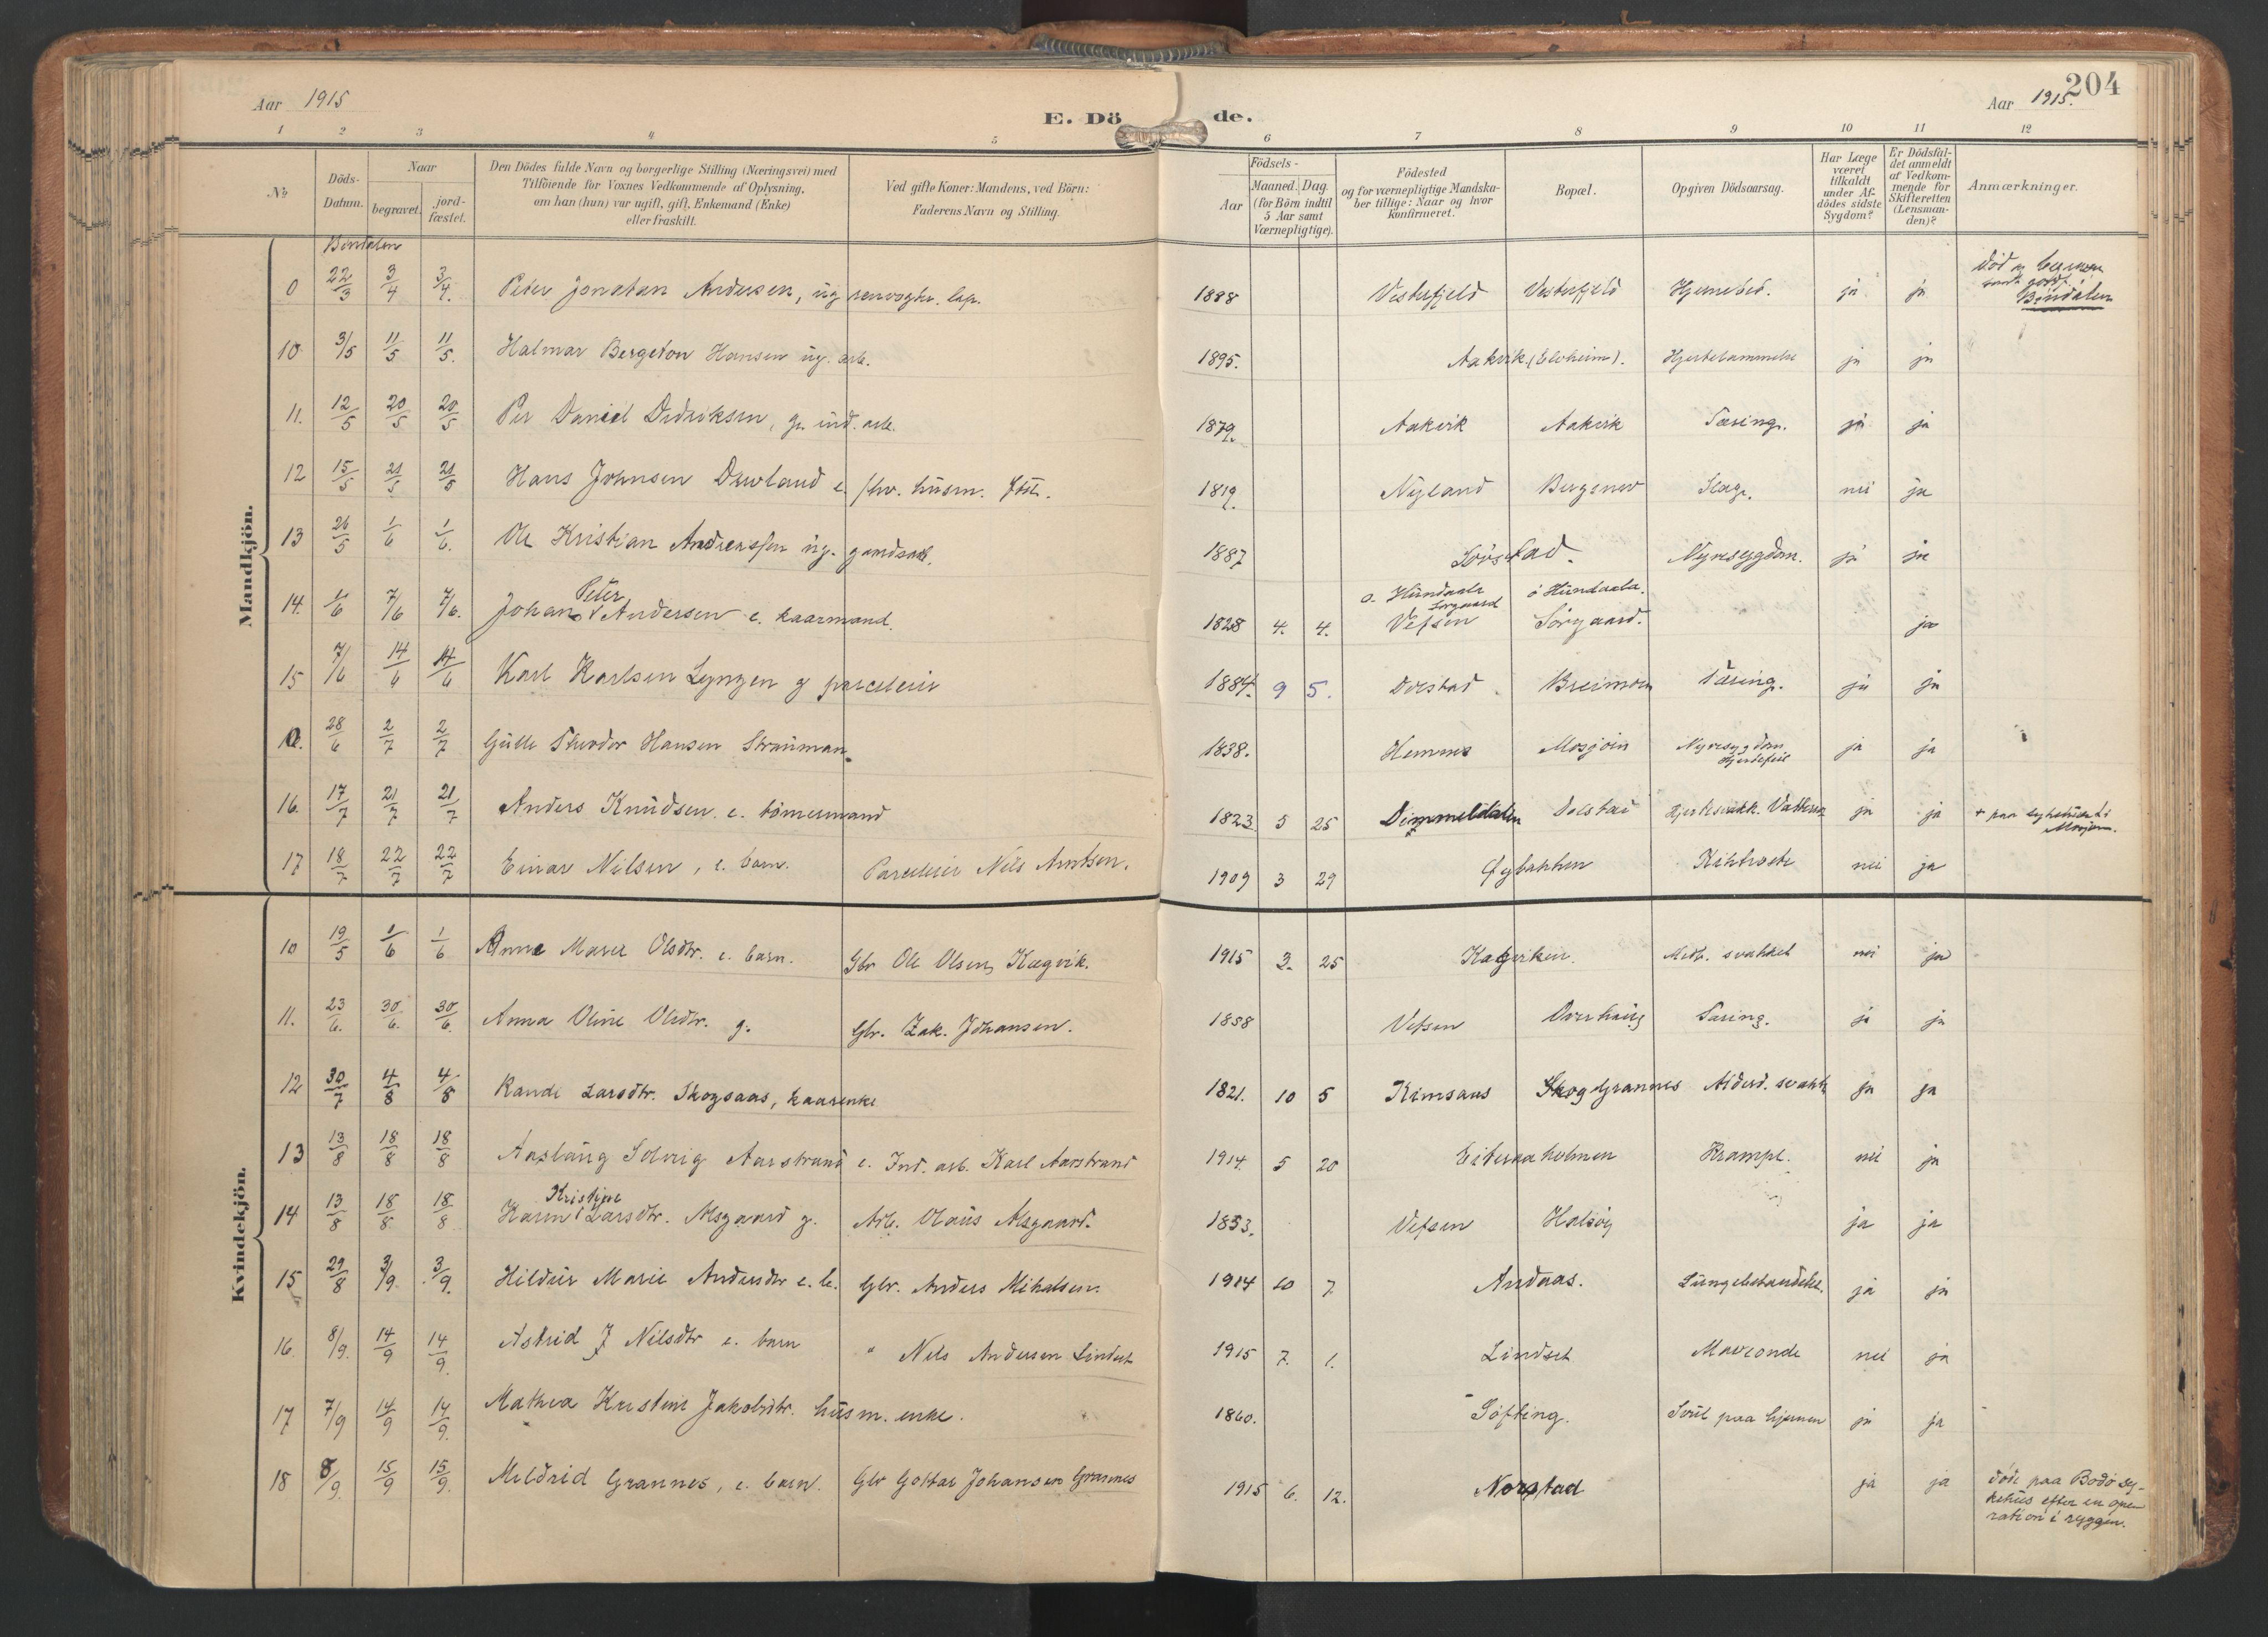 204
Aar 1915
E. Dö de.
Aar 1915.
1 2 3 4 5 6 7 8 9 10 11 12
No
Döds-Datum.
Naar begravet. jord-fæstet.
Den Dödes fulde Navn og borgerlige Stilling (Næringsvei) med Tilföiende for Voxnes Vedkommende af Oplysning, om han (hun) var ugift, gift, Enkemand (Enke) eller fraskilt.
Ved gifte Koner: Mandens, ved Börn: Faderens Navn og Stilling.
Födsels-
Aar
Maaned. Dag. (for Börn indtil 5 Aar samt Værnepligtige).
Födested og for værnepligtige Mandskaber tillige: Naar og hvor konfirmeret.
Bopæl.
Opgiven Dödsaarsag.
Har Læge været tilkaldt under Afdödes sidste Sygdom?
Er Dödsfaldet anmeldt af Vedkommende for Skifteretten (Lensmanden)?
Anmærkninger.
Mandkjön.
Bindalen
0 22/3 3/4 3/4. Peter Jonatan Andersen, ug renvogter. lap. 1898 Vesterfjeld Vesterfjeld ja ja Bindalen
10 3/5 11/5 11/5. Halmar Bergeton Hansen ug. arb. 1895. Aakvik (Elvheim). ja ja
11. 12/5 20/5 20/5 Per Daniel Didriksen, g. ind. arb. 1879. Aakvik Aakvik Tæring. ja ja
12 15/5 21/5 21/5 Hans Johnsen Drevland e. fhv. husm. 1819. Nyland Bergsnev Slag. nei ja
13 26/5 1/6 1/6. Ole Kristian Anderssen ug. gaardsarb. 1887 Nyresygdom. ja ja
14. 1/6 7/6 7/6. Johan Peter Andersen e. kaarmand. 1828 4. 4. Vefsen ö Hundaala. Sörgaard. ja
15 7/6 14/6 14/6 Karl Karlsen Lyngen g parceleier 1884. 9 5. Dolstad Breimoen Tæring. ja ja
28/6 2/7 2/7 Gulle Theodor Hansen Strauman. 1838. Hemnes Mosjöen Nyresygdom Hjertefeil ja ja
16. 17/7 21/7 21/7 Anders Knudsen e. tömermand 1823. 5 25 Dimmeldalen Dolstad ja ja + paa sykehuset i Mosjöen.
17 18/7 22/7 22/7 Einar Nilsen, e. barn. Parceleier Nils Arntsen. 1909 3 29 Öybakken Kikhoste nei ja
Kvindekjön.
10 19/5 1/6 1/6 Anna Marie Olsdtr. e. barn. Gbr Ole Olsen, Kagvik. 1915 3. 25 Kagviken. Medf. svakhet nei ja
11. 23/6. 30/6. 30/6. Anna Oline Olsdtr. g. Gbr. Zak. Johansen. 1858 Vefsen Tæring. ja ja
12 30/7 4/8 4/8 Randi Larsdtr. Skogsaas, kaarenke 1821. 10 5 Kimsaas Skog Grannes Alderd. svakh ja ja
13 13/8 18/8 18/8 Aaslaug Solveig Aarstrand e. Ind. arb. Karl Aarstrand 1914. 5 20 Eiteraaholmen Krampe. nei ja
14 13/8 18/8 18/8 Karen Kristine Larsdtr. Alsgaard g. Arb. Olaus Alsgaard. 1853. Vefsen Halsöy ja ja
15 29/8 3/9. 3/9. Hildur Marie Andersdtr e. b. Gbr. Anders Mikalsen. 1914 10 7. Andaas. Lungebetændelse. ja ja
16. 8/9. 14/9 14/9. Astrid J Nilsdtr e. barn " Nils Andersen Lindset 1915 7. 1. Lindset Maveonde nei ja
17 7/9 14/9 14/9. Mathea Kristine Jakobsdtr. husm. enke. 1860. Söfting. Svul paa hjernen ja ja
18 8/9. 15/9 15/9. Mildrid Grannes, e. barn. Gbr Gustav Johansen Grannes 1915 6. 12. Norstad ja ja döde paa Bodö sykehus efter en operation i ryggen.